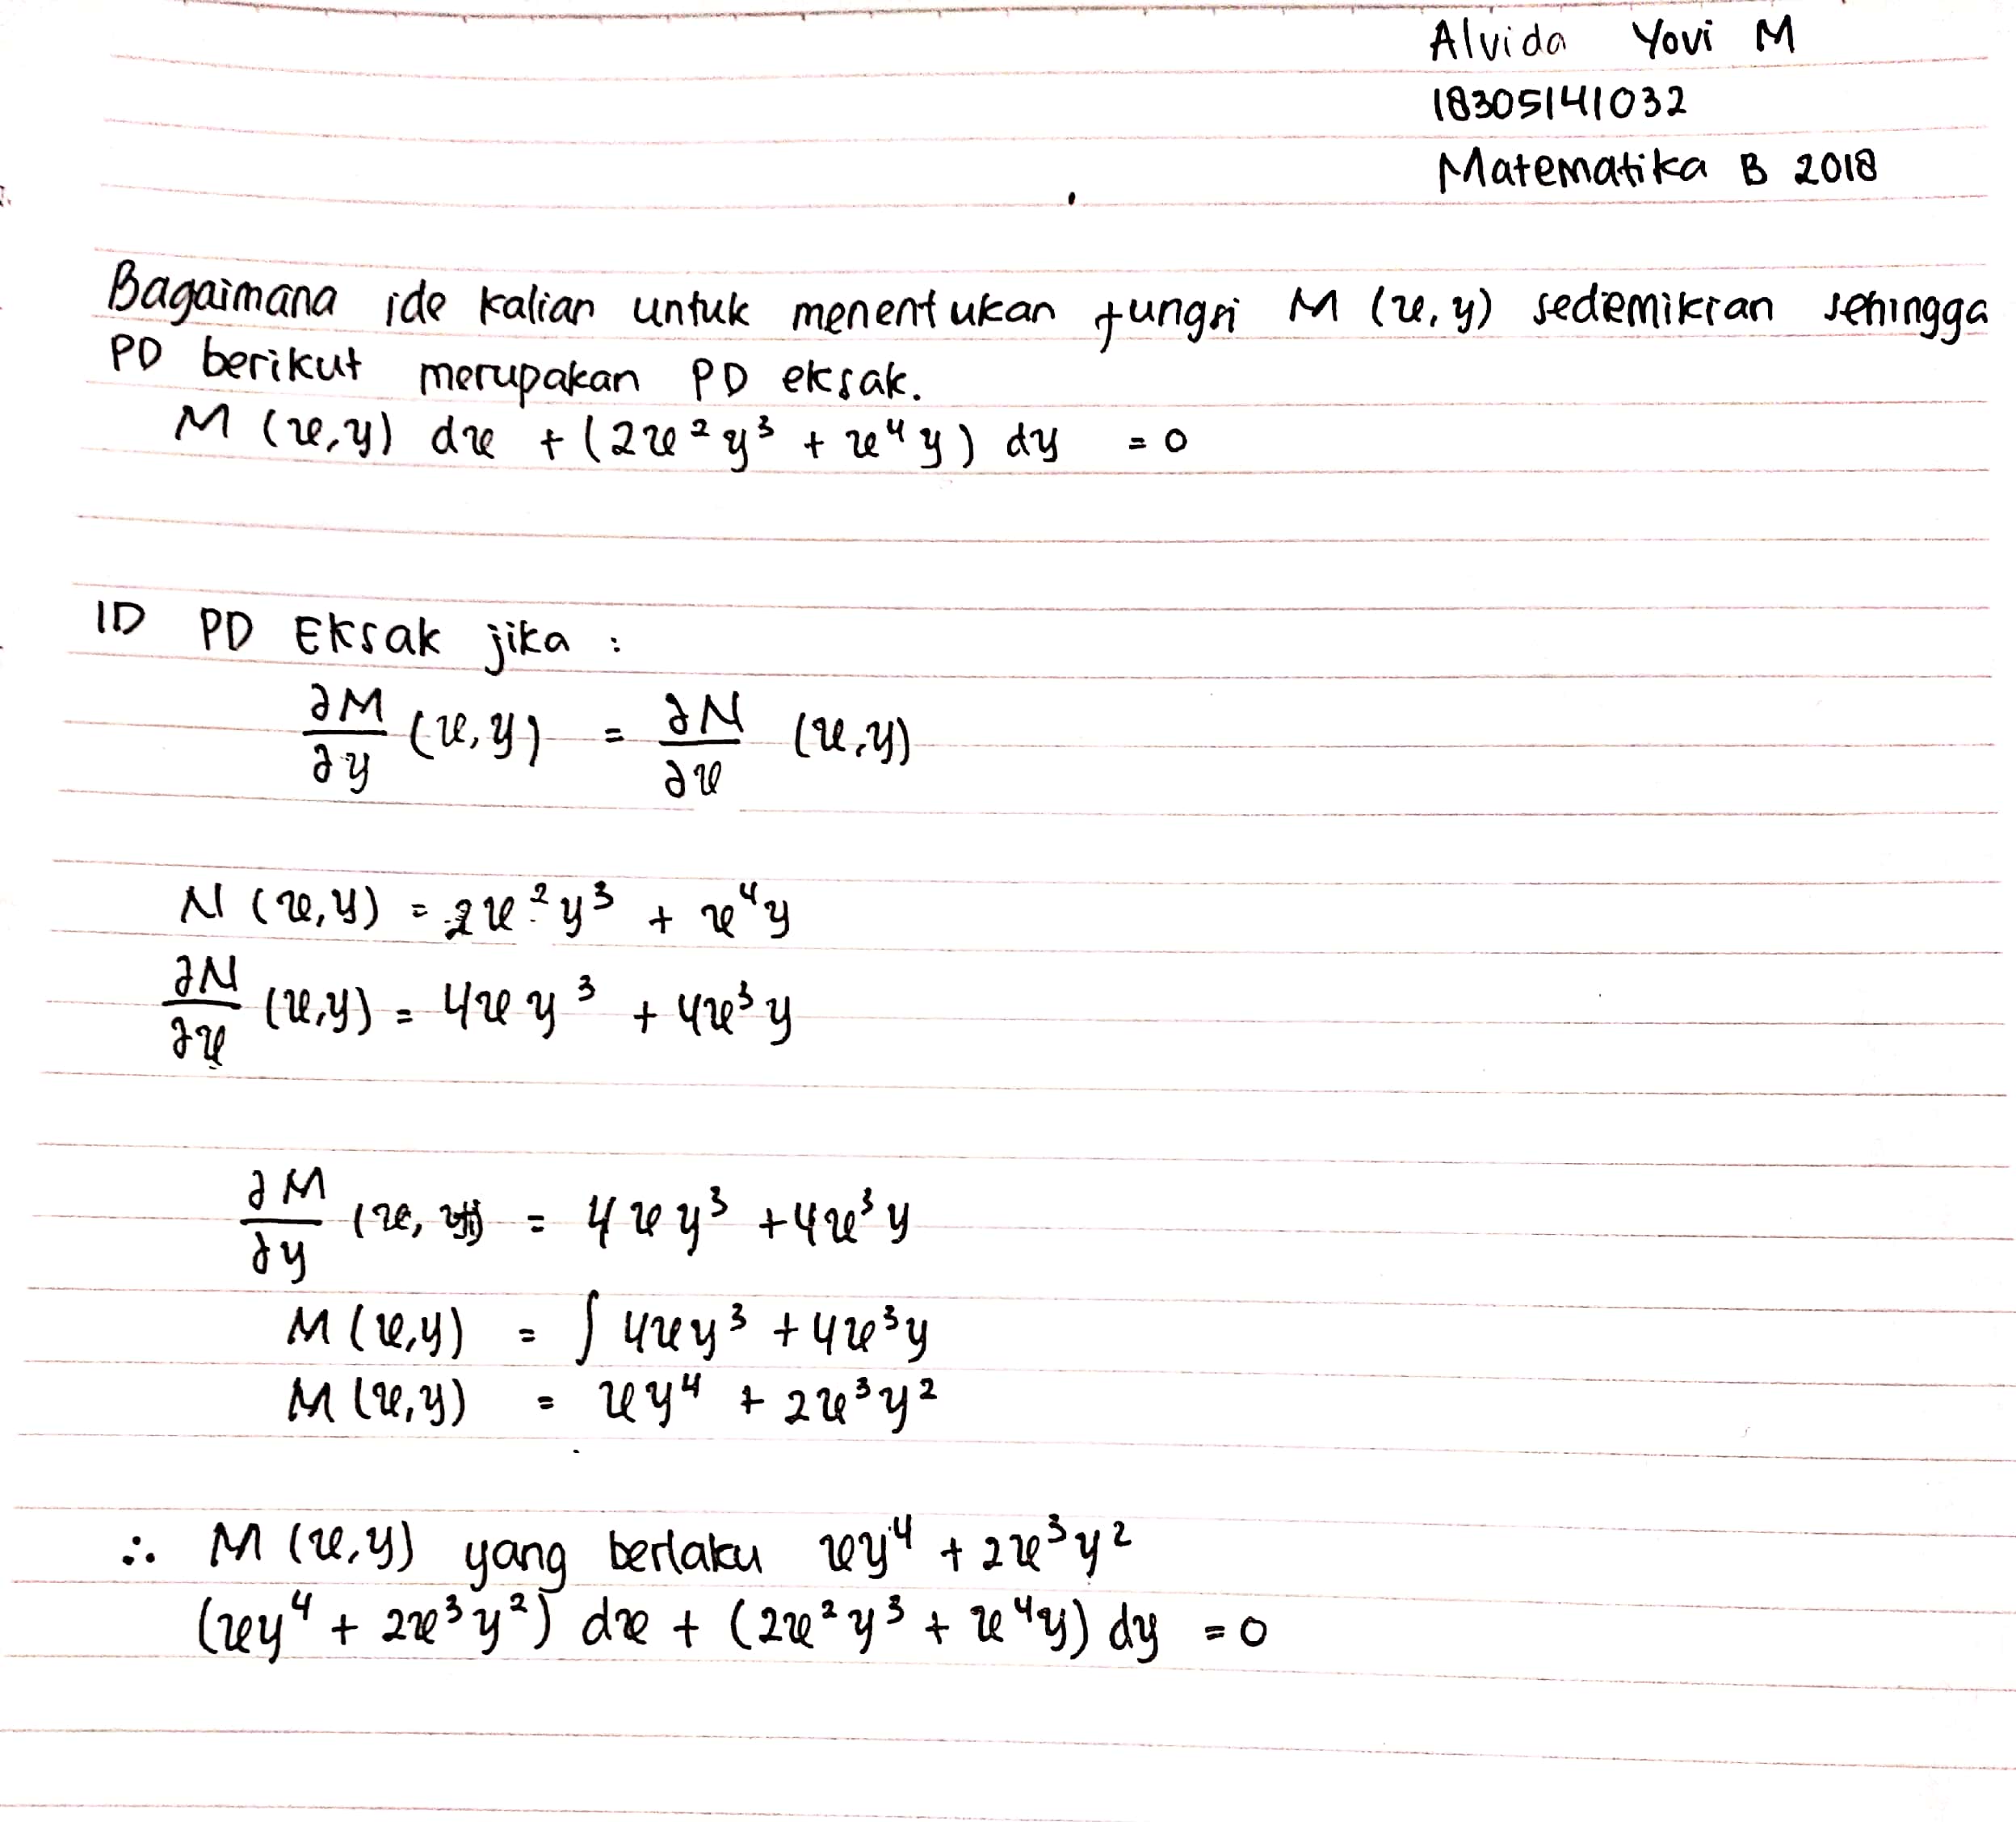 Alvida Yovi M
18305141032
Matematika B 2018
Bagaimana ide kalian untuk menentukan fungsi M (x,y) sedemikian sehingga
PD berikut merupakan PD eksak.
M (x,y) dx + (2x²y³ + x⁴y) dy = 0
ID PD Eksak jika :
∂M/∂y (x,y) = ∂N/∂x (x,y)
N (x,y) = 2x²y³ + x⁴y
∂N/∂x (x,y) = 4xy³ + 4x³y
∂M/∂y (x,y) = 4xy³ + 4x³y
M (x,y) = ∫ 4xy³ + 4x³y
M (x,y) = xy⁴ + 2x³y²
∴ M (x,y) yang berlaku xy⁴ + 2x³y²
(xy⁴ + 2x³y²) dx + (2x²y³ + x⁴y) dy = 0